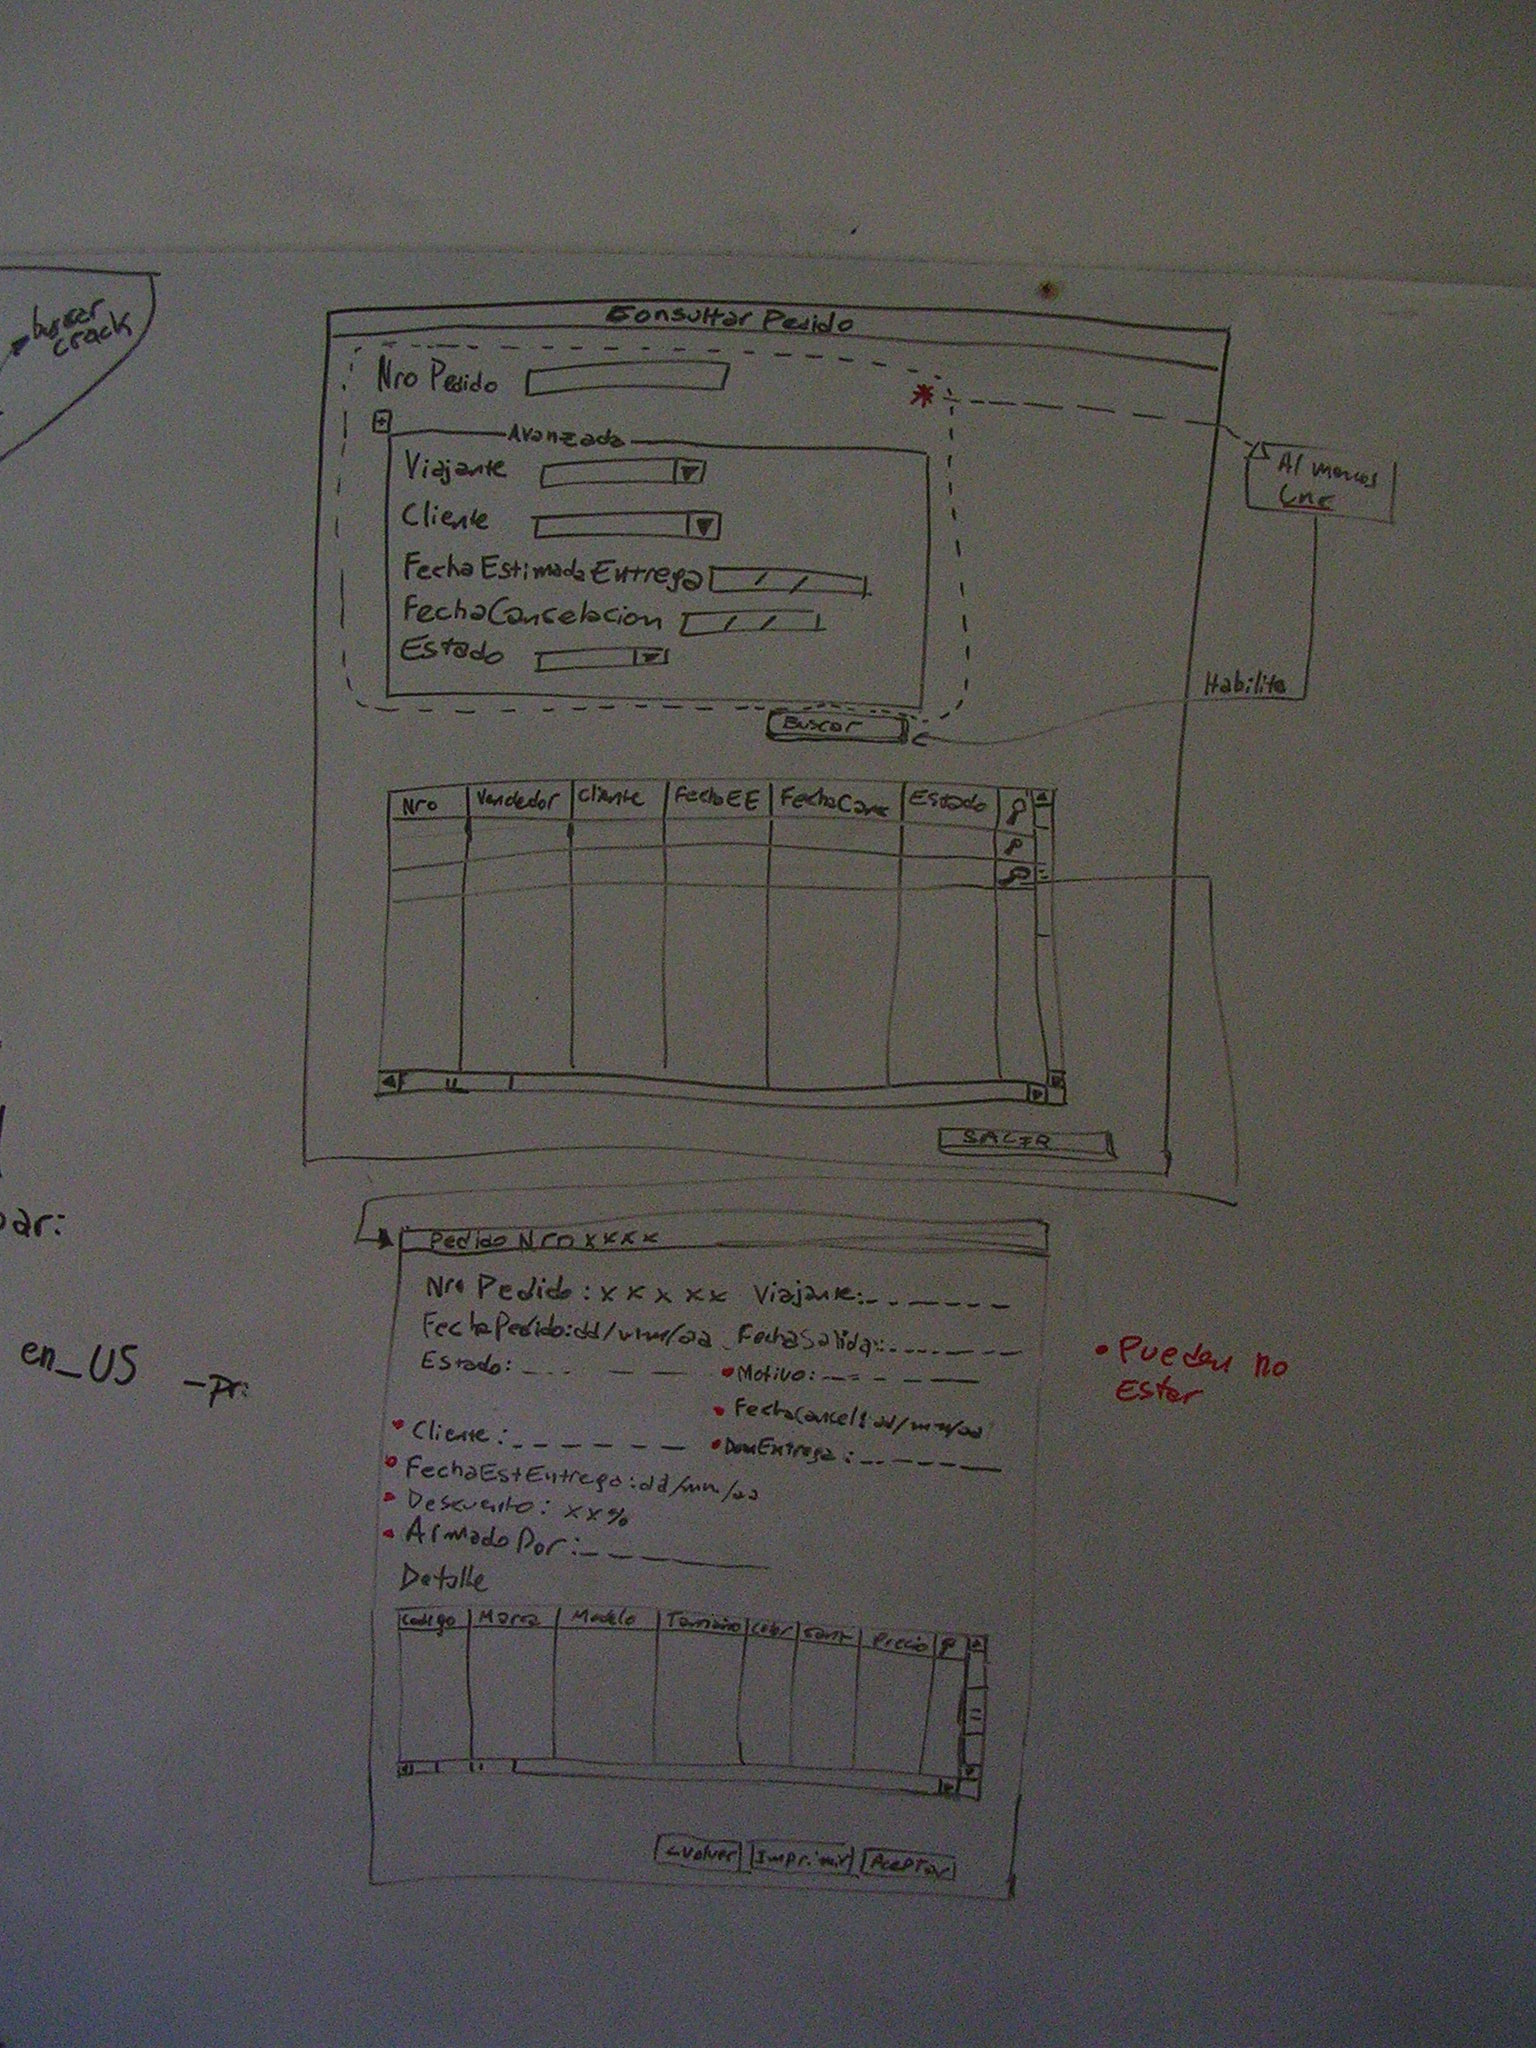 buscar
crack
Consultar Pedido
Nro Pedido
*
+
Avanzada
Viajante
Cliente
FechaEstimadaEntrega / /
FechaCancelacion / /
Estado
Al menos
Une
Habilita
Buscar
Nro Vendedor Cliente FechaEE FechaCanc Estado
SALIR
Pedido Nro xxxx
Nro Pedido: xxxxx Viajante:
FechaPedido:dd/mm/aa FechaSalida:
Estado: • Motivo:
• FechaCancel: dd/mm/aa
• Cliente: • DomEntrega:
• FechaEstEntrega:dd/mm/aa
• Descuento: xx%
• ArmadoPor:
Detalle
Codigo Marca Modelo Tamaño Color Cant Precio
<Volver Imprimir Aceptar
• Pueden no
Estar
ar:
en_US -pr: